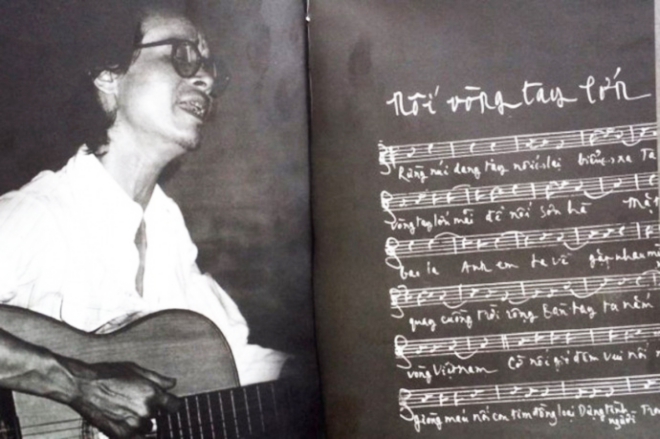 nối vòng tay lớn
Rừng núi dang tay nối lại biển xa Ta
vòng tay lớn mãi để nối sơn hà Mặt
bao la Anh em ta về gặp nhau
quay cuồng trời rộng Bàn tay ta nắm
vòng Việt nam Cờ nối gió đêm vui nối
giòng máu nối con tim đồng loại Dựng tình
người Tron